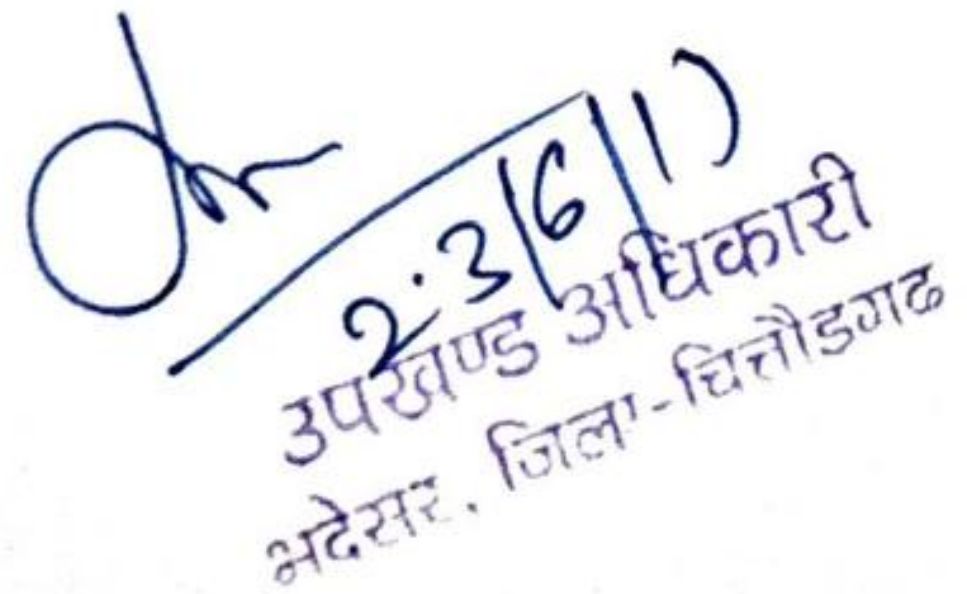 2.3/6/1)
उपखण्ड अधिकारी
भदेसर, जिला-चित्तौडगढ